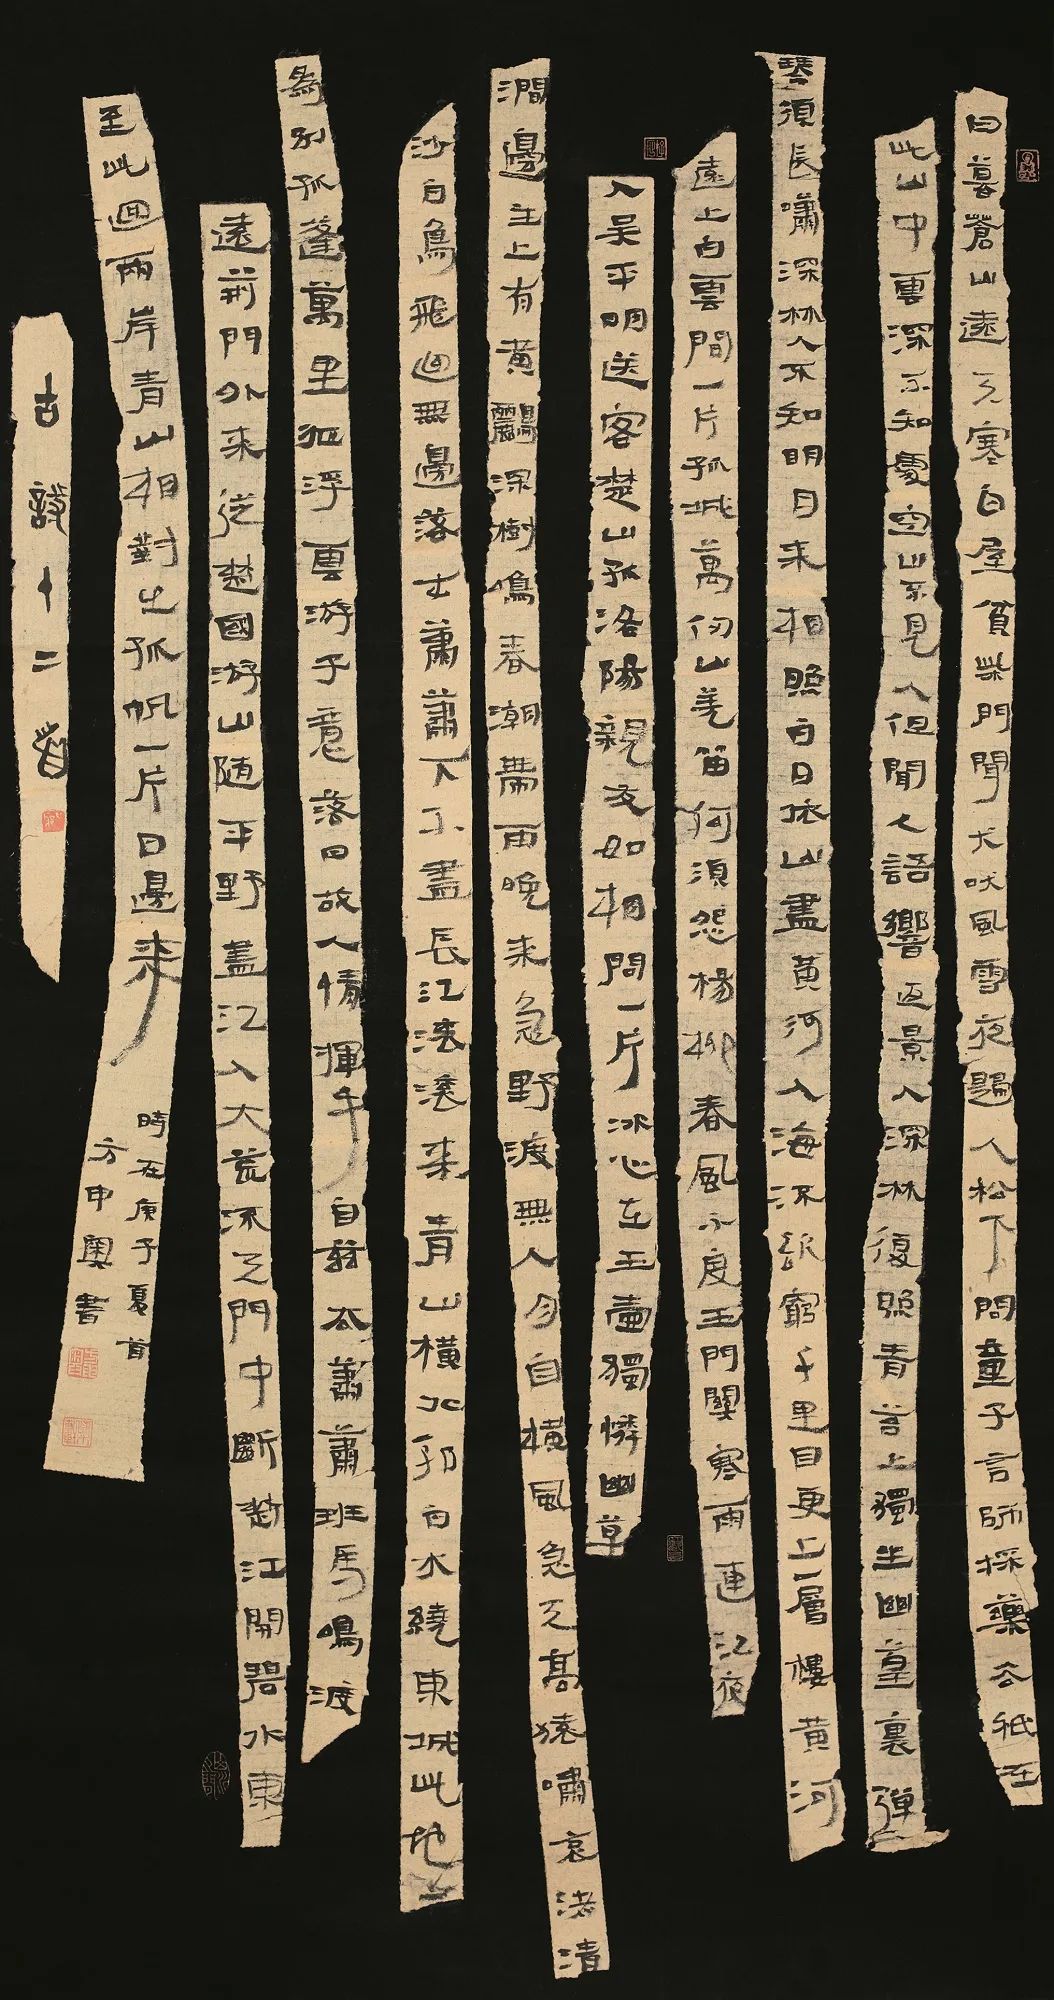 日暮蒼山遠天寒白屋貧柴門聞犬吠風雪夜歸人松下問童子言師採藥去祇在
此山中雲深不知處空山不見人但聞人語響返景入深林復照青苔上獨坐幽篁裏彈
琴須長嘯深林人不知明月來相照白日依山盡黃河入海流欲窮千里目更上一層樓黃河
遠上白雲間一片孤城萬仞山羌笛何須怨楊柳春風不度玉門關寒雨連江夜
入吳平明送客楚山孤洛陽親友如相問一片冰心在玉壺獨憐幽草
澗邊生上有黃鸝深樹鳴春潮帶雨晚來急野渡無人舟自橫風急天高猿嘯哀渚清
沙白鳥飛迴無邊落木蕭蕭下不盡長江滾滾來青山橫北郭白水繞東城此地一
為別孤蓬萬里征浮雲游子意落日故人情揮手自茲去蕭蕭班馬鳴渡
遠荊門外來從楚國游山隨平野盡江入大荒流天門中斷楚江開碧水東
至此迴兩岸青山相對出孤帆一片日邊來
時在庚子夏首
方申奧書
古詩十二首